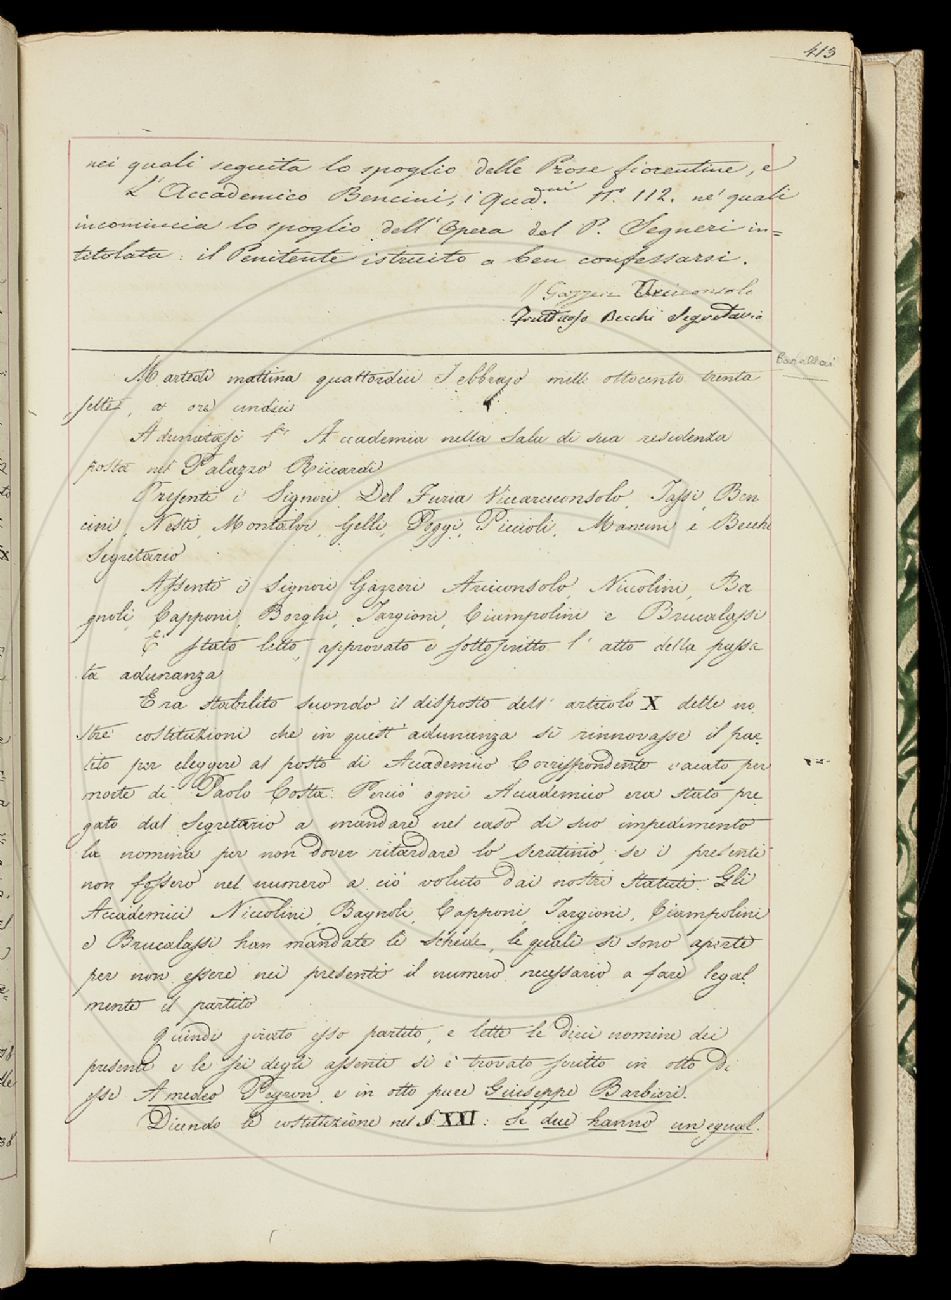 413
nei quali seguita lo spoglio delle Prose fiorentine, e
L'Accademico Bencini, i Quad.rni N.o 112. ne' quali
incomincia lo spoglio dell'Opera del P. Segneri in=
titolata: il Penitente istruito a ben confessarsi.
Gazzeri Arciconsolo
Fruttuoso Becchi Segretario
Martedi mattina quattordici Febbrajo mille ottocento trenta
sette, a ore undici
Adunatasi l' Accademia nella Sala di sua residenza
posta nel Palazzo Riccardi
Presenti i Signori Del Furia Vicearciconsolo, Tassi, Ben
cini, Nesti, Montalvi, Gelli, Poggi, Piccioli, Mancini e Becchi
Segretario
Assenti i Signori Gazzeri Arciconsolo, Niccolini, Ba
gnoli, Capponi, Borghi, Targioni, Ciampolini e Brucalassi
E' stato letto, approvato e sottoscritto l' atto della passa
ta adunanza
Era stabilito secondo il disposto dell' articolo X delle no
stre costituzioni che in quest' adunanza si rinnovasse il par
tito per eleggere al posto di Accademico Corrispondente vacato per
morte di Paolo Costa. Perciò ogni Accademico era stato pre
gato dal Segretario a mandare nel caso di suo impedimento
la nomina per non dover ritardare lo scrutinio, se i presenti
non fossero nel numero a ciò voluto dai nostri Statuti. Gli
Accademici Niccolini, Bagnoli, Capponi, Targioni, Ciampolini
e Brucalassi han mandate le schede, le quali si sono aperte
per non essere nei presenti il numero necessario a fare legal
mente il partito
Quindi girato esso partito, e lette le dieci nomine dei
presenti e le sei degli assenti si è trovato scritto in otto di
esse Amedeo Peyron e in otto pure Giuseppe Barbieri.
Dicendo le costituzione nel § XXI: Se due hanno un egual.